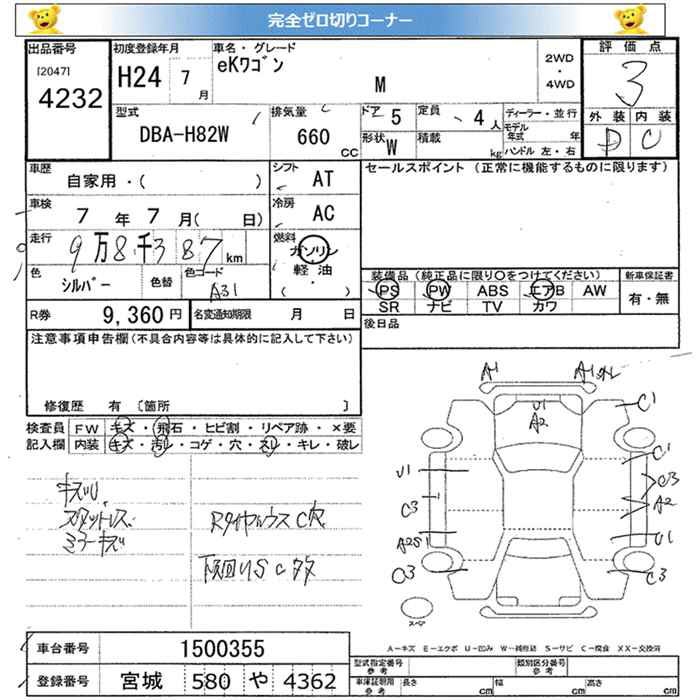 完全ゼロ切りコーナー
出品番号
[2047]
4232
初度登録年月
H24 7月
車名・グレード
eKワゴン
M
2WD
・
4WD
評価点
3
外装 内装
D C
型式
DBA-H82W
排気量
660 cc
ドア 5
定員 4人
形状 W
積載 kg
ディーラー・並行
モデル年式 年
ハンドル 左・右
車歴
自家用・( )
シフト AT
車検
7年7月( 日)
冷房 AC
走行
9万8千387km
燃料
ガソリン
軽油
( ・ )
色
シルバー
色替
色コード
A31
R券 9,360円
名変通知期限 月 日
セールスポイント(正常に機能するものに限ります)
装備品(純正品に限り○をつけてください)
PS PW ABS エアB AW
SR ナビ TV カワ
新車保証書
有・無
後日品
注意事項申告欄(不具合内容等は具体的に記入して下さい)
修復歴 有 〔箇所 〕
検査員記入欄
FW キズ・飛石・ヒビ割・リペア跡・×要
内装 キズ・汚レ・コゲ・穴・スレ・キレ・破レ
スタットレス
ミラーキズ
RタイヤハウスC穴
A1
A1
U1
A2
C1
U1
C3
A2S1
C3
C1
C3
A2
U1
C3
スペア
A-キズ E-エクボ U-凹み W-補修跡 S-サビ C-腐食 XX-交換済
車台番号 1500355
登録番号 宮城 580 や 4362
型式指定番号 参考
類別区分番号
車庫証明用 参考
長さ cm
幅 cm
高さ cm